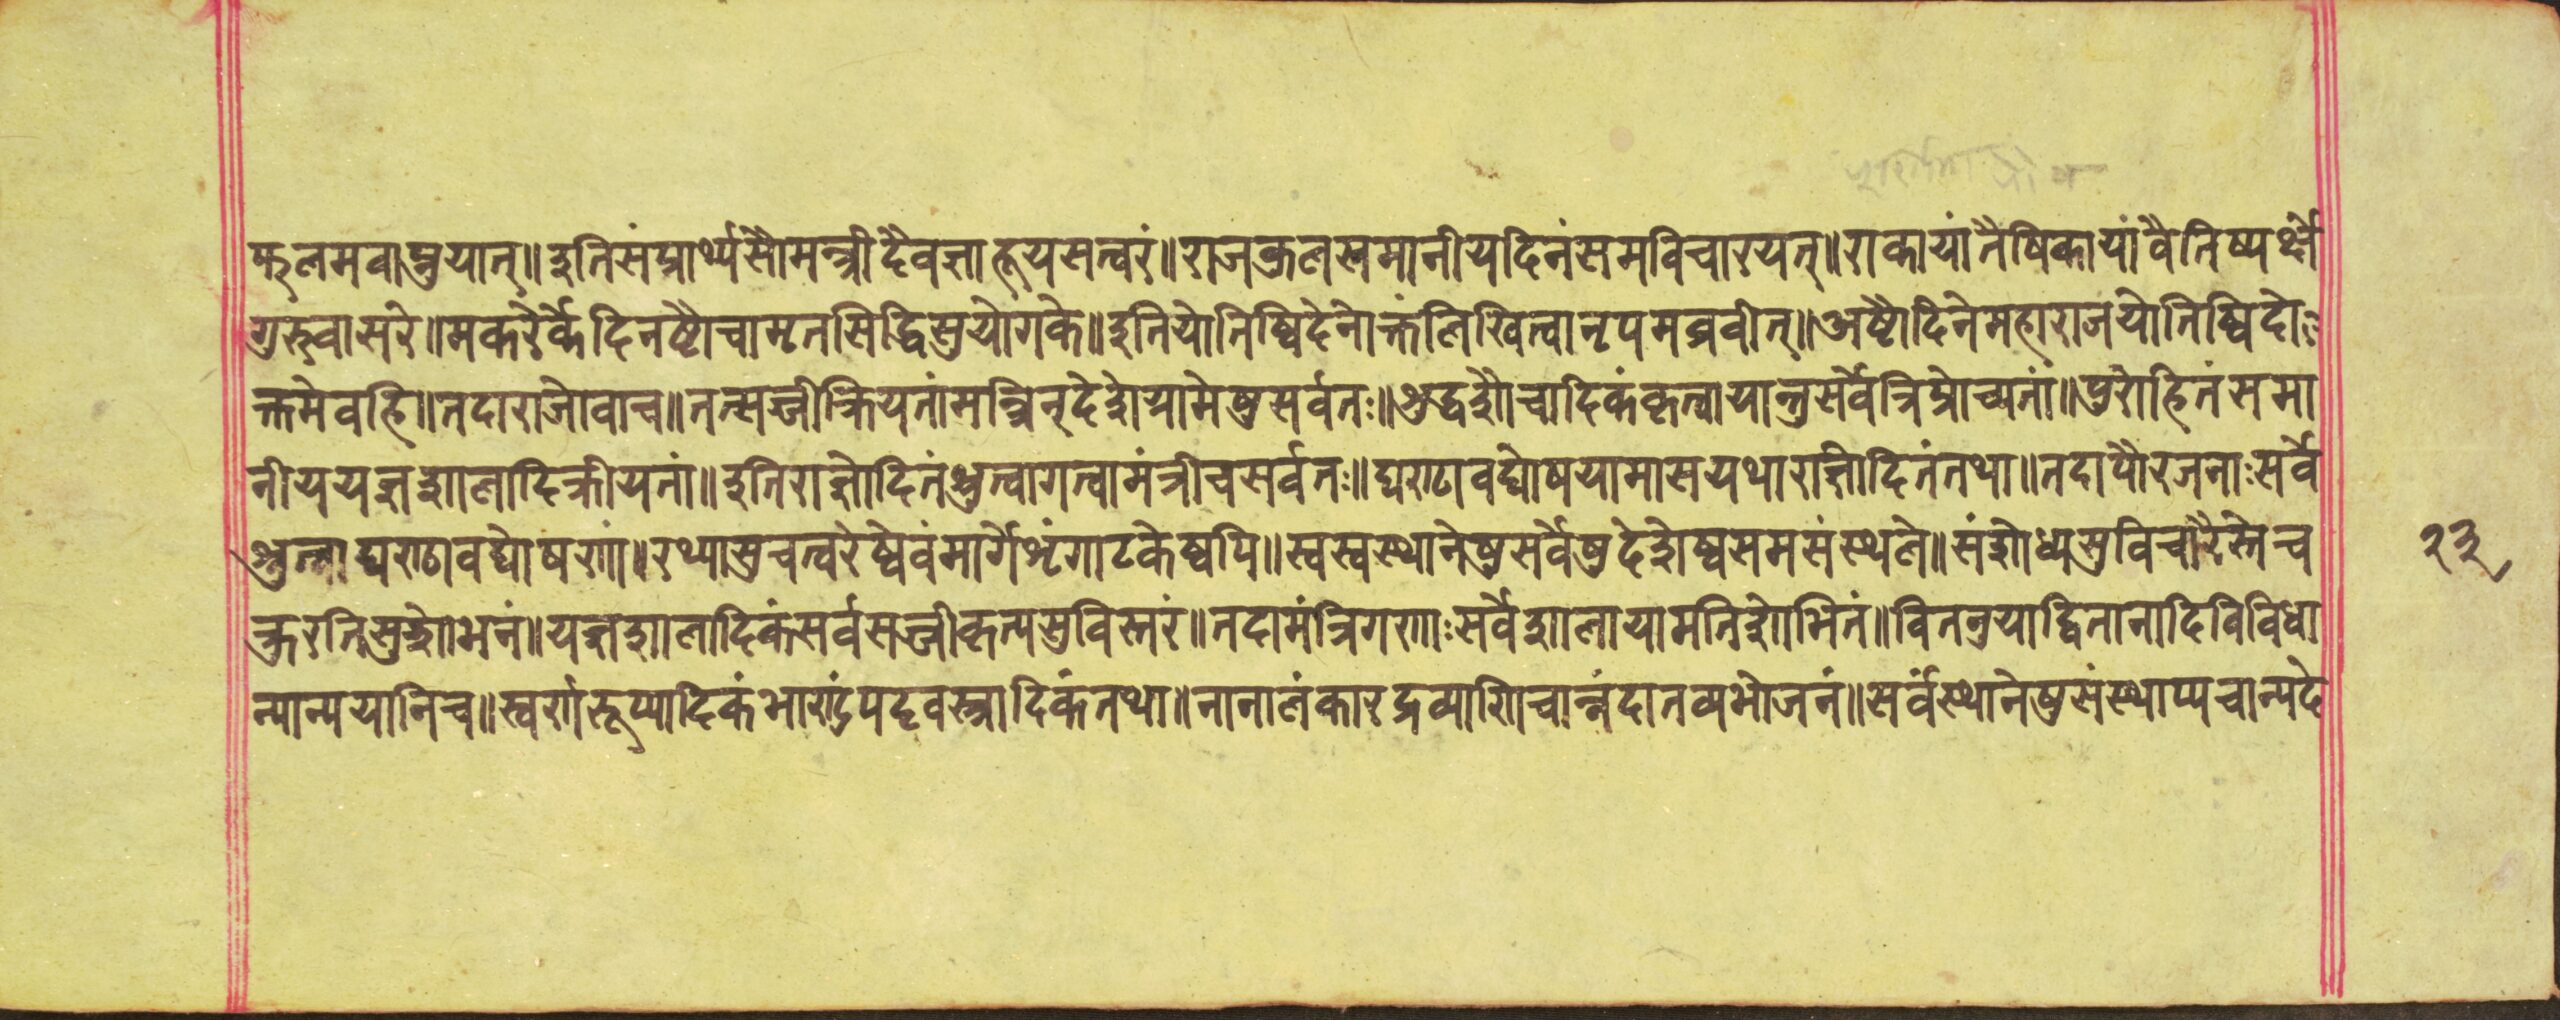 फलमवाप्नुयात्॥इतिसंप्रार्थ्यसौमन्त्रीदैवज्ञाहूयसत्वरं॥राजकुलसमानीयदिनंसमविचारयत्॥राकायांतैषिकायांवैतिष्यर्क्षे
गुरुवासरे॥मकरेर्केदिनष्टौचामृतसिद्धिसुयोगके॥इतियोतिष्विदेनोक्तंलिखित्वानृपमब्रवीत्॥अष्टौदिनेमहाराजयोतिष्विदो
क्तमेवहि॥तदाराजोवाच॥तत्सज्जीक्रियतांमन्त्रिन्देशेग्रामेषुसर्वतः॥शुद्धशौचादिकंकृत्वायान्तुसर्वेत्रिप्रोच्यतां॥पुरोहितंसमा
नीययज्ञशालादिक्रीयतां॥इतिराज्ञोदितंश्रुत्वागत्वामंत्रीचसर्वतः॥घण्टावघोषयामासयथाराज्ञोदितंतथा॥तदापौरजनाःसर्वे
श्रुत्वाघण्ठावघोषणां॥रथ्यासुचत्वरेष्वेवंमार्गेशृंगाटकेष्वपि॥स्वस्वस्थानेषुसर्वेषुदेशेष्वसमसंस्थले॥संशोध्यसुविचारैस्तेच
क्रुरतिसुशोभनं॥यज्ञशालादिकंसर्वसज्जीकृत्यसुविस्तरं॥तदामंत्रिगणाःसर्वेशालायामतिशोभितं॥वितनुयाद्वितानादिविविधा
न्यान्मयानिच॥स्वर्णरूप्यादिकंभाण्डंपट्टवस्त्रादिकंतथा॥नानालंकारद्रव्याणिचान्नंदातव्यभोजनं॥सर्वस्थानेषुसंस्थाप्यचान्यदे
२३